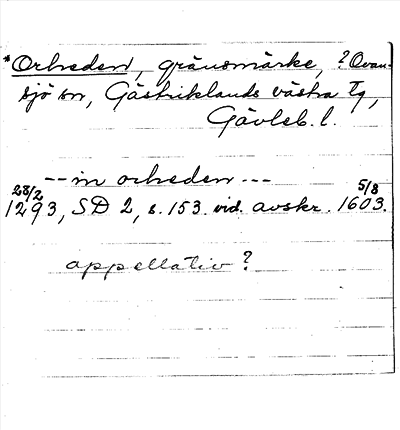 *Orheden, gränsmärke, ?Ovan-
sjö sn, Gästriklands västra tg,
Gävleb. l.
--in orheden---
28/2 1293, SD 2, s. 153. vid. avskr. 5/8 1603.
appellativ?